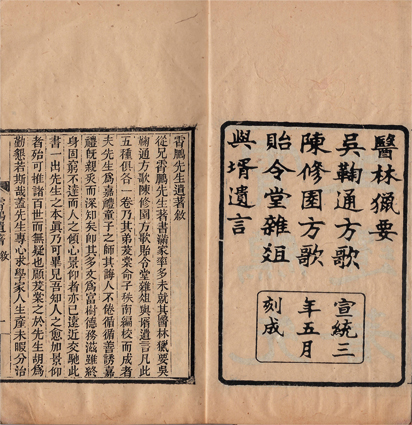 醫林獵要
吳鞠通方歌
陳修園方歌
貽令堂雜俎
與壻遺言
宣統三
年五月
刻成
霄鵬先生遺著敘
從兄霄鵬先生著書滿家事多未就其醫林獵要吳
鞠通方歌陳修園方歌貽令堂雜俎與壻遺言凡此
五種俱各一卷乃其弟芰棠命子秩南編校而成者
夫先生為嘉禮童子之師其誨人不倦循循善誘嘉
禮既親炙而深知矣即其多文為富樹德務滋雖終
身固窮不達而人之傾心景仰者亦已遠近交馳此
書一出先生之本真乃可畢見吾知人之愈加景仰
者殆可推諸百世而無疑也顧芰棠之於先生胡為
勤懇若斯哉蓋先生專心求學家人生產未暇分治
霄鵬遺著 敘